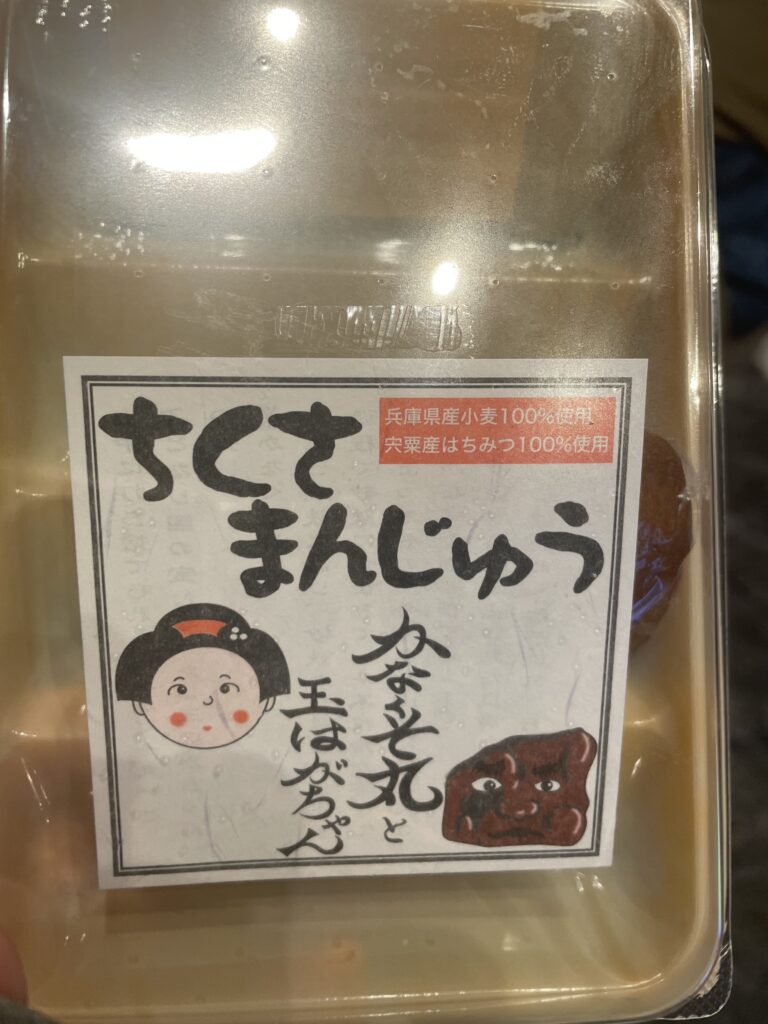 ちくさ
まんじゅう
兵庫県産小麦100%使用
宍粟産はちみつ100%使用
かなくそ丸と
玉はがちゃん